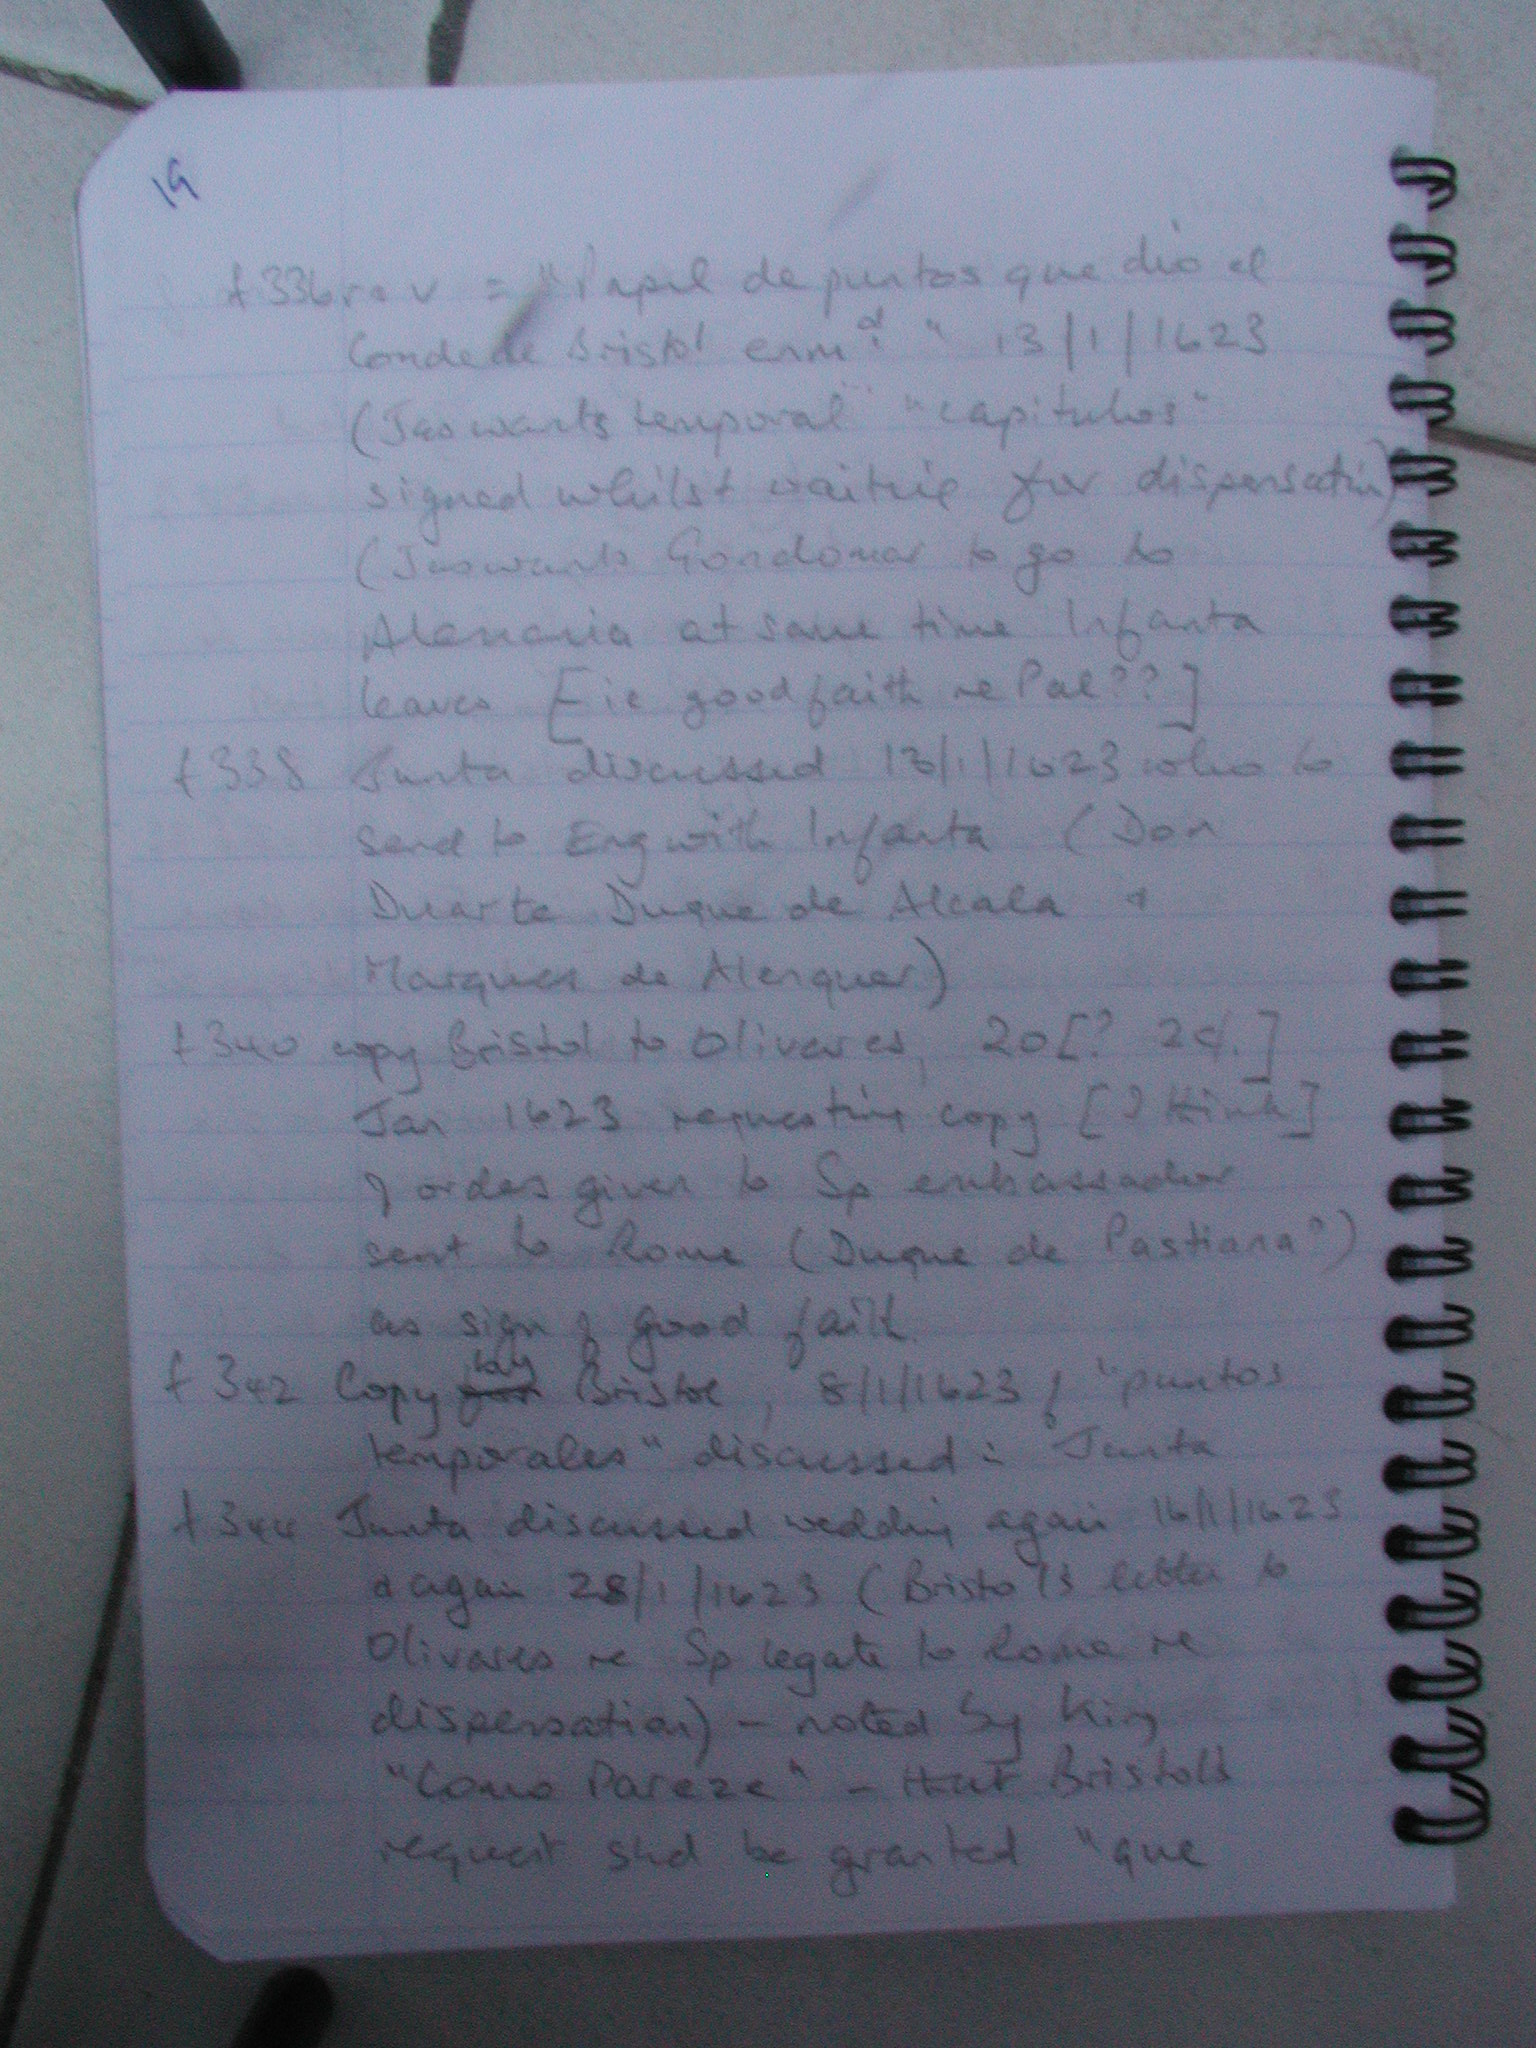 19
f 336 r & v = "Papel de puntos que dio el
Conde de Bristol en md. " 13/1/1623
(Jas wants temporal "capitulos"
signed whilst waiting for dispensation)
(Jas wants Gondomar to go to
Alemania at same time Infanta
leaves [ie good faith re Pal??]
f 338 Junta discussed 13/1/1623 who to
send to Eng with Infanta (Don
Duarte Duque de Alcala &
Marques de Alenquer)
f 340 copy Bristol to Olivares, 20 [? 24.]
Jan 1623 requesting copy [?
of orders given to Sp embassador
sent to Rome (Duque de Pastiana?)
as sign of good faith.
f 342 Copy by Bristol, 8/1/1623 of "puntos
temporales" discussed in Junta
f 344 Junta discussed wedding again 16/1/1623
& again 28/1/1623 (Bristol's letter to
Olivares re Sp legate to Rome re
dispensation) - noted by King
"Como Pareze" - that Bristol's
request shd be granted "que